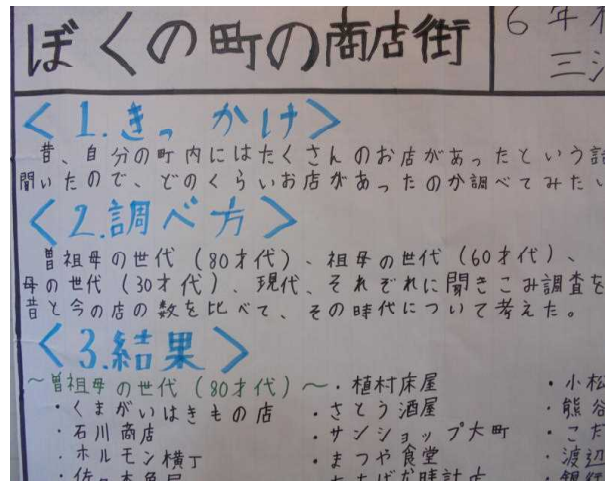 ぼくの町の商店街
6年
三
<1.きっかけ>
昔、自分の町内にはたくさんのお店があったという話
聞いたので、どのくらいお店があったのか調べてみたい
<2.調べ方>
曽祖母の世代(80才代)、祖母の世代(60才代)、
母の世代(30才代)、現代、それぞれに聞きこみ調査を
昔と今の店の数を比べて、その時代について考えた。
<3.結果>
～曽祖母の世代(80才代)～
・くまがいはきもの店
・石川商店
・ホルモン横丁
・佐々木魚屋
・植村床屋
・さとう酒屋
・サンショップ大町
・まつや食堂
・たちばな時計店
・小松
・熊谷
・こだ
・渡辺